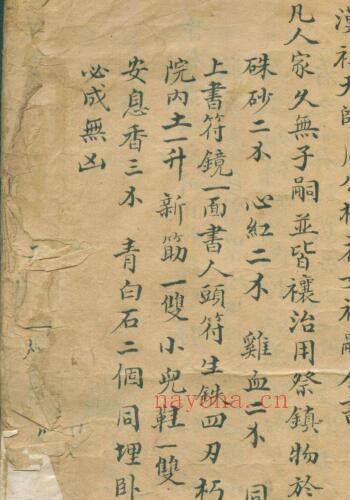 凡人家久無子嗣並皆禳治用祭鎮物於
硃砂二不 心紅二不 雞血二不 同
上書符鏡一面書人頭符生鉄四刃朽
院內土一升 新筯一雙 小兒鞋一雙
安息香三不 青白石二個 同埋卧
必成無凶
nayona.cn